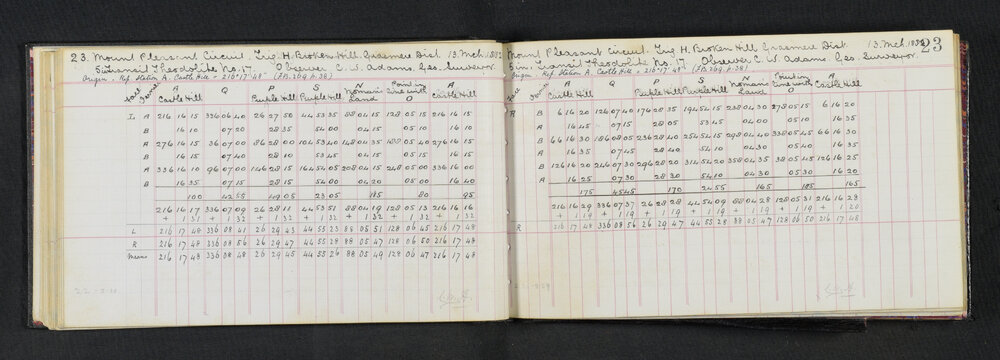 23. Mount Pleasant Circuit. Trig H. Broken Hill. Graemee Dist. 13. Mch. 1882
5 in. Transit Theodolite No. 17 Observer C. W. Adams. Geo. Surveyor
Origin. Ref. Station A. Castle Hill = 216° 17' 48" (F.B. 209. p. 38)
Face A Castle Hill Q P Purkle Hill S Purkle Hill N Nomans Land Point in Line with O A Castle Hill
L A 216 16 15 336 06 40 26 27 50 44 53 35 88 04 15 128 05 15 216 16 15
B 16 10 07 20 28 35 54 00 04 15 05 10 16 10
A 276 16 15 36 07 00 86 28 00 104 53 40 148 04 35 188 05 40 276 16 15
B 16 15 07 40 28 10 53 45 04 15 05 15 16 15
A 336 16 10 96 07 00 146 28 15 164 54 05 208 04 15 248 05 00 336 16 00
B 16 35 07 15 28 15 54 00 04 20 05 00 16 40
100 42 55 49 05 23 05 185 80 95
216 16 17 336 07 09 26 28 11 44 53 51 88 04 19 128 05 13 216 16 16
+ 1 31 + 1 32 + 1 32 + 1 32 + 1 32 + 1 32 + 1 32
L 216 17 48 336 08 41 26 29 43 44 55 23 88 05 51 128 06 45 216 17 48
R 216 17 48 336 08 56 26 29 47 44 55 28 88 05 47 128 06 50 216 17 48
Mean 216 17 48 336 08 48 26 29 45 44 55 26 88 05 49 128 06 47 216 17 48
Mount Pleasant Circuit. Trig H. Broken Hill Graemee Dist. 13. Mch. 1882 23
5 in. Transit Theodolite No. 17 Observer C. W. Adams. Geo. Surveyor.
Origin. Ref. Station A. Castle Hill = 216° 17' 48" (F.B. 209 p. 38)
Face A Castle Hill Q P Purkle Hill S Purkle Hill N Nomans Land Point in Line with O A Castle Hill
R B 6 16 20 126 07 40 176 28 35 194 54 15 238 04 30 278 05 15 6 16 20
A 16 45 07 15 28 05 53 45 04 00 05 10 16 35
B 66 16 30 186 08 05 236 28 40 254 54 15 298 04 40 338 05 45 66 16 30
A 16 35 07 45 28 40 54 10 04 30 05 40 16 35
B 126 16 20 246 07 30 296 28 20 314 54 20 358 04 35 38 05 45 126 16 25
A 16 25 07 30 28 30 54 10 04 30 05 30 16 20
175 45 45 170 24 55 165 185 165
216 16 29 336 07 37 26 28 28 44 54 09 88 04 28 128 05 31 216 16 28
+ 1 19 + 1 19 + 1 19 + 1 19 + 1 19 + 1 19 + 1 20
R 216 17 48 336 08 56 26 29 47 44 55 28 88 05 47 128 06 50 216 17 48